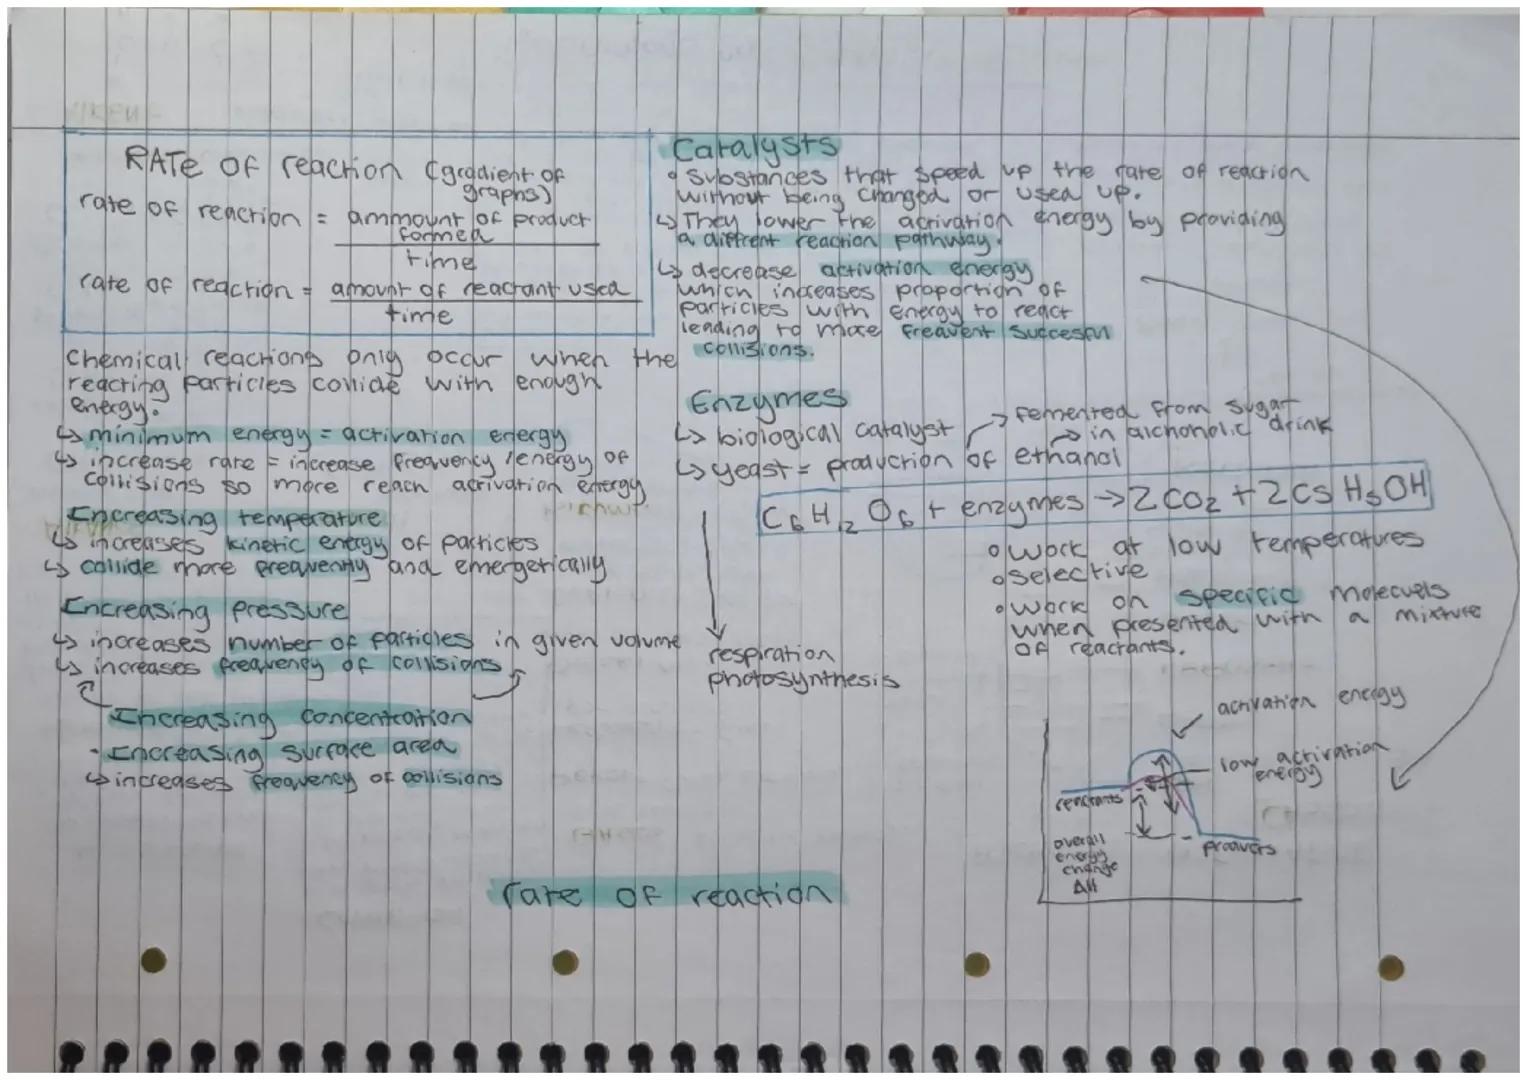 RATE OF reaction (gradient of
graphs)
rate of reaction = ammount of product
formed
time
rate of reaction = amount of reactant used
time
Chemical reactions only occur when the
reacting particles collide with enough
energy.
↳ minimum energy = activation energy
↳ increase rate = increase frequency/energy of
collisions so more reach activation energy
Increasing temperature
↳ increases kinetic energy of particles
↳ collide more frequently and emergetically
Increasing pressure
↳ increases number of particles in given volume
↳ increases frequency of collisions
Increasing concentration
· Increasing surface area
↳ increases frequency of collisions
Catalysts
• Substances that speed up the rate of reaction
without being changed or used up.
↳ They lower the activation energy by providing
a diffrent reaction pathway.
↳ decrease activation energy
which increases proportion of
particles with energy to react
leading to more frequent succesful
collisions.
Enzymes
↳ biological catalyst
→ femented from sugar
→ in alchoholic drink
↳ yeast = production of ethanol
C6H12O6 + enzymes → 2CO2 + 2C5H5OH
• work at low temperatures
• selective
• work on specific molecuels
when presented with a mixture
of reactants.
respiration
photosynthesis
activation energy
low activation
energy
reactants
overall
energy
change
ΔH
products
rate of reaction